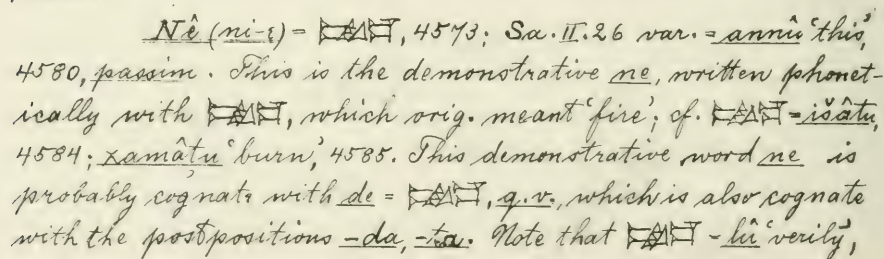 Nê (ni-ε) = 𒉈, 4573; Sa. II. 26 var. = annû 'this',
4580, passim. This is the demonstrative ne, written phonet-
ically with 𒉈, which orig. meant 'fire'; cf. 𒉈 = išâtu,
4584; xamâtu 'burn', 4585. This demonstrative word ne is
probably cognate with de = 𒉈, q.v., which is also cognate
with the postpositions -da, -ta. Note that 𒉈 - lû 'verily',